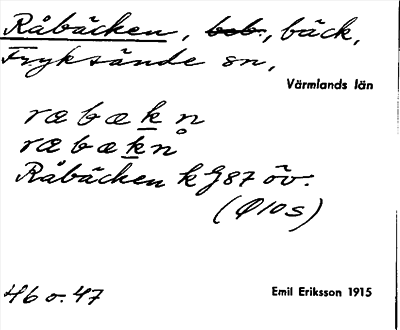 Råbäcken, bob., bäck,
Fryksände sn,
Värmlands län
ræbækn
ræbækn̊
Råbäcken k G87 öv.
(Ø10S)
46 o. 47
Emil Eriksson 1915